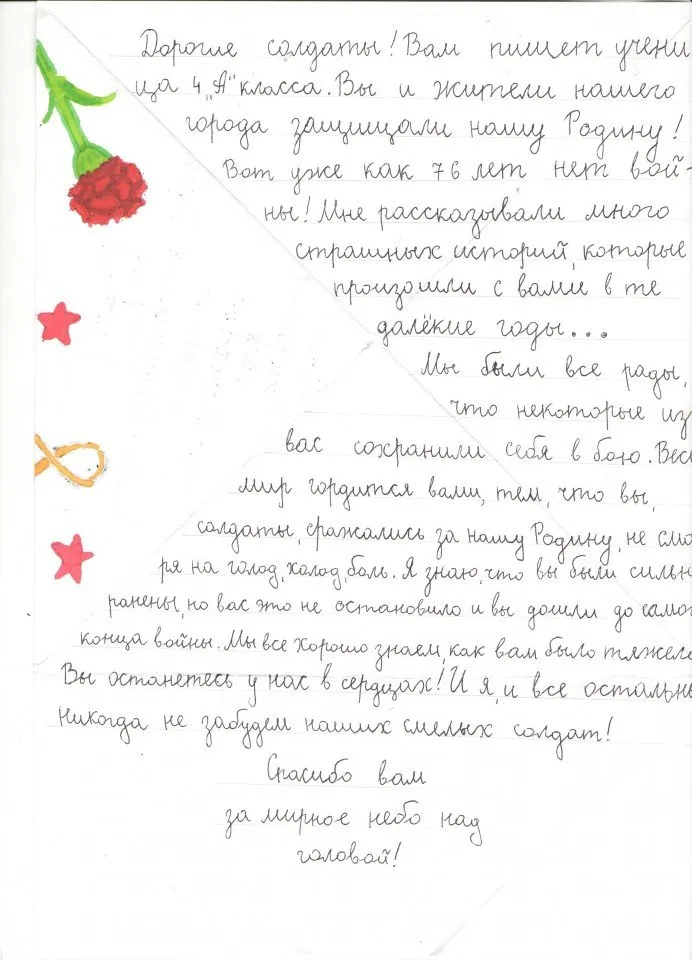 Дорогие солдаты! Вам пишет учени
ца 4 „А" класса. Вы и жители нашего
города защищали нашу Родину!
Вот уже как 76 лет нет вой-
ны! Мне рассказывали много
страшных историй, которые
произошли с вами в те
далёкие годы...
Мы были все рады,
что некоторые из
вас сохранили себя в бою. Весь
мир гордится вами, тем, что вы,
солдаты, сражались за нашу Родину, не смо
ря на голод, холод, боль. Я знаю, что вы были сильн
ранены, но вас это не остановило и вы дошли до самог
конца войны. Мы все хорошо знаем, как вам было тяжело
Вы останетесь у нас в сердцах! И я, и все остальны
никогда не забудем наших смелых солдат!
Спасибо вам
за мирное небо над
головой!